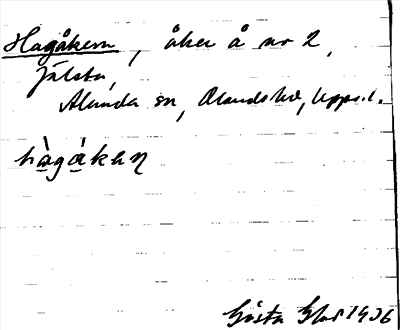 Hagåkern, åker å nr 2,
Jälsta,
Alunda sn, Olands hd, Upps. l.
hàgákaɳ
Gösta 1936